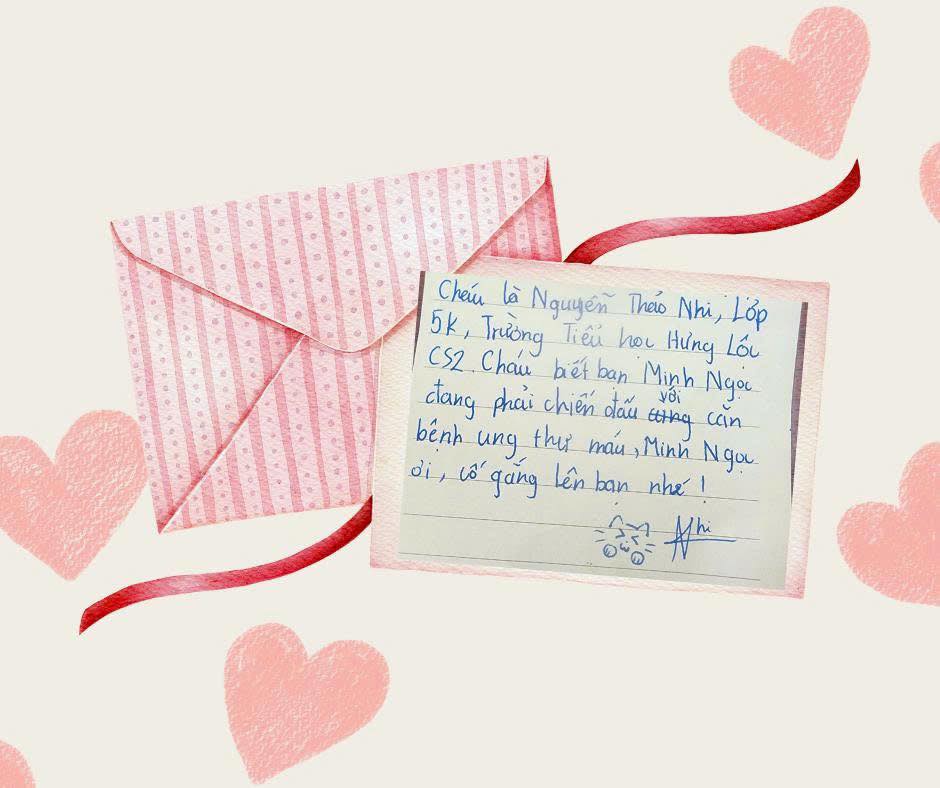 Cháu là Nguyễn Thảo Nhi, Lớp
5k, Trường Tiểu học Hưng Lộc
CS2. Cháu biết bạn Minh Ngọc
đang phải chiến đấu với căn
bệnh ung thư máu, Minh Ngọc
ơi, cố gắng lên bạn nhé!
Nhi